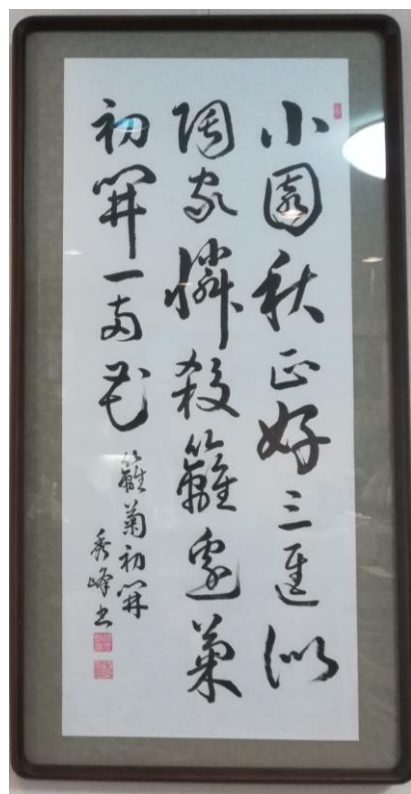 小園秋正好三逕似
陶家憐殺籬邊菊
初開一両花
籬菊初開
秀峰書